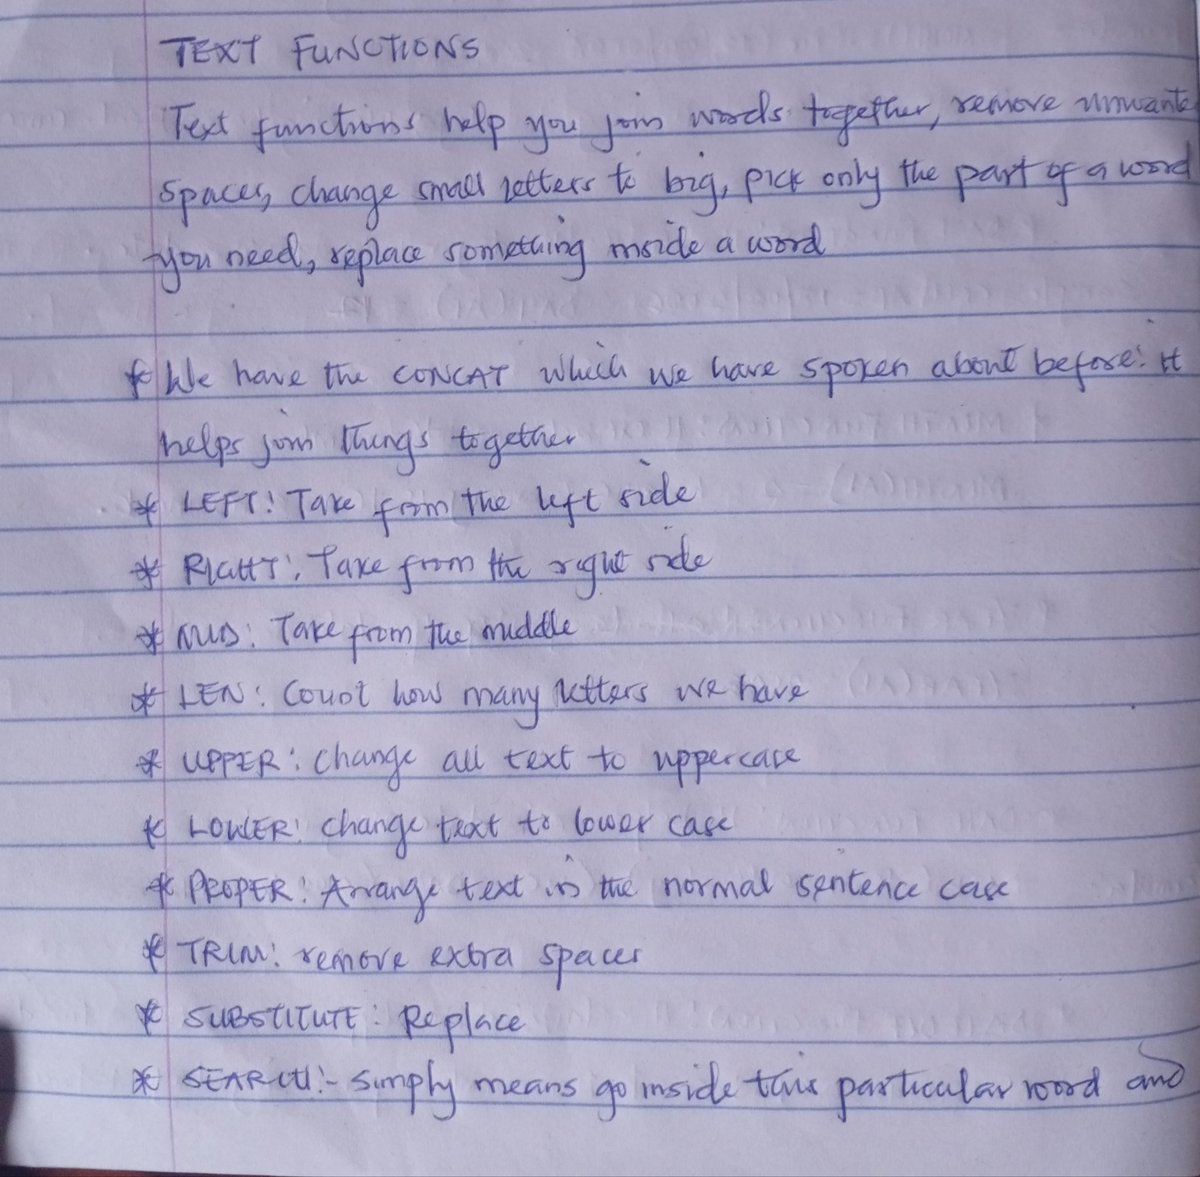 TEXT FUNCTIONS
Text functions help you join words together, remove unwante
spaces, change small letters to big, pick only the part of a word
you need, replace something inside a word
* We have the CONCAT which we have spoken about before: it
helps join things together
* LEFT: Take from the left side
* RIGHT: Take from the right side
* MID: Take from the middle
* LEN: Count how many letters we have
* UPPER: change all text to uppercase
* LOWER: change text to lower case
* PROPER: Arrange text in the normal sentence case
* TRIM: remove extra spaces
* SUBSTITUTE: Replace
* SEARCH:- Simply means go inside this particular word and